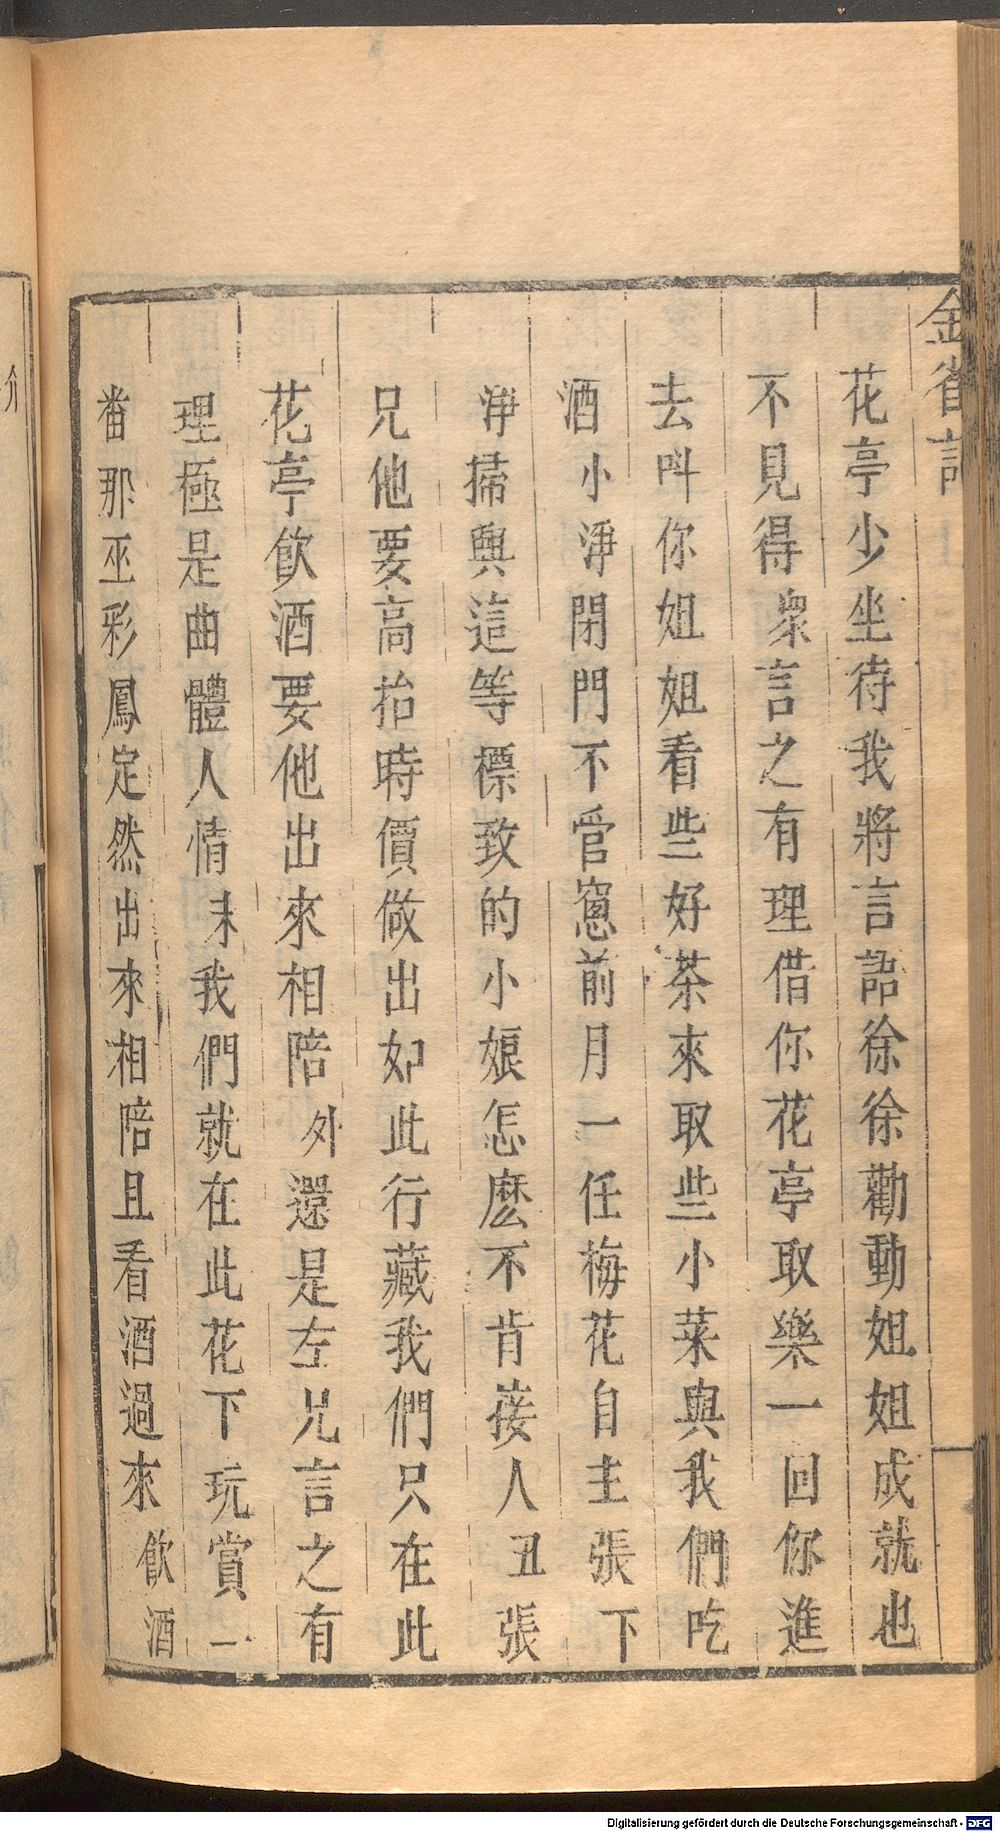 金雀記
花亭少坐待我將言語徐徐勸動姐姐成就也
不見得衆言之有理借你花亭取樂一回你進
去呌你姐姐看些好茶來取些小菜與我們吃
酒小淨閉門不管窻前月一任梅花自主張下
淨掃興這等標致的小娘怎麽不肯接人丑張
兄他要高抬時價做出如此行藏我們只在此
花亭飮酒要他出來相陪外還是左兄言之有
理極是曲體人情末我們就在此花下玩賞一
畨那巫彩鳳定然出來相陪且看酒過來飮酒
介
Digitalisierung gefördert durch die Deutsche Forschungsgemeinschaft - DFG